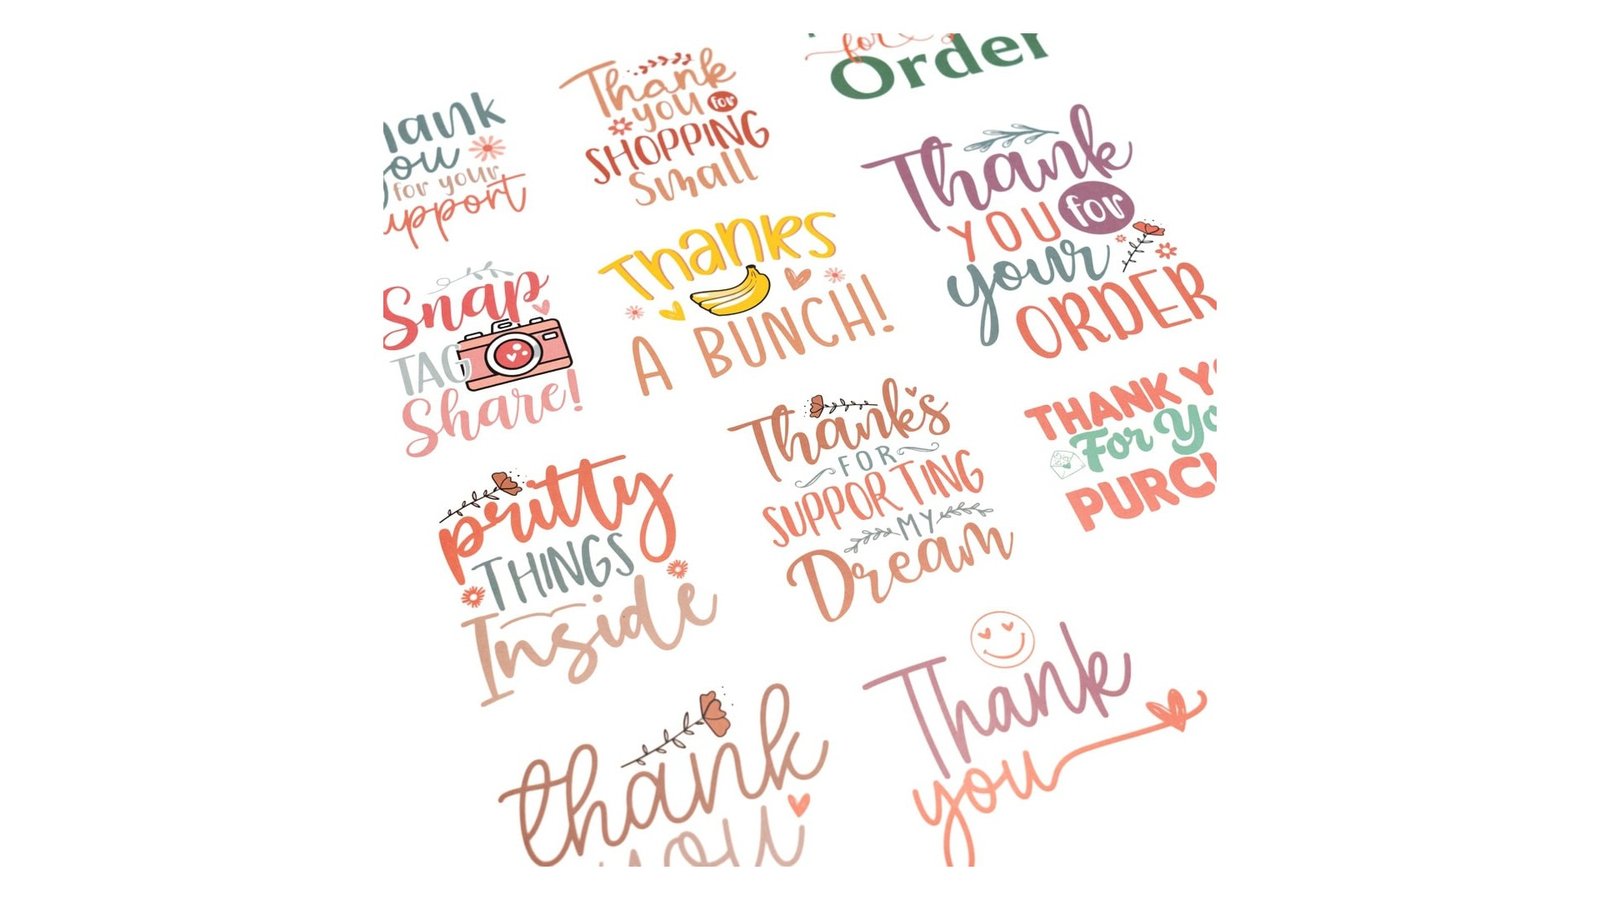 for
Order
Thank
you for
SHOPPING
small
hank
you
for your
upport
Thank
YOU for
your
ORDER
Thanks
A BUNCH!
Snap
TAG
Share!
Thank's
FOR
SUPPORTING
MY
Dream
THANK Y
For Yo
PURC
pritty
THINGS
Inside
Thank
you
thank
you